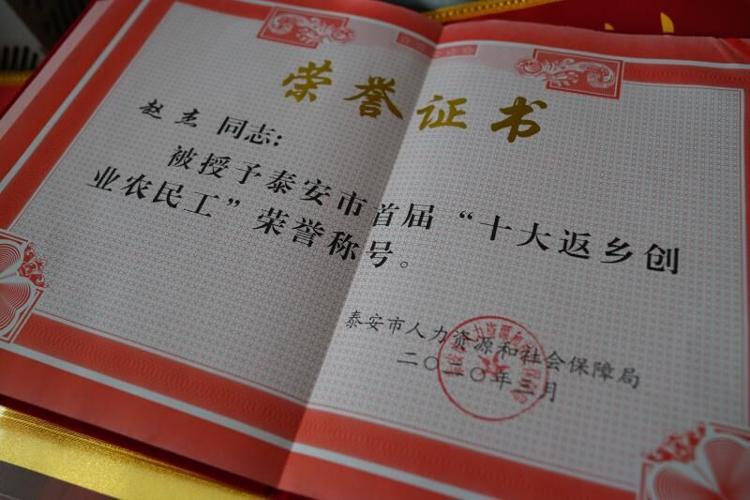 荣誉证书
赵杰 同志:
被授予泰安市首届“十大返乡创
业农民工”荣誉称号。
泰安市人力资源和社会保障局
二〇二〇年 月